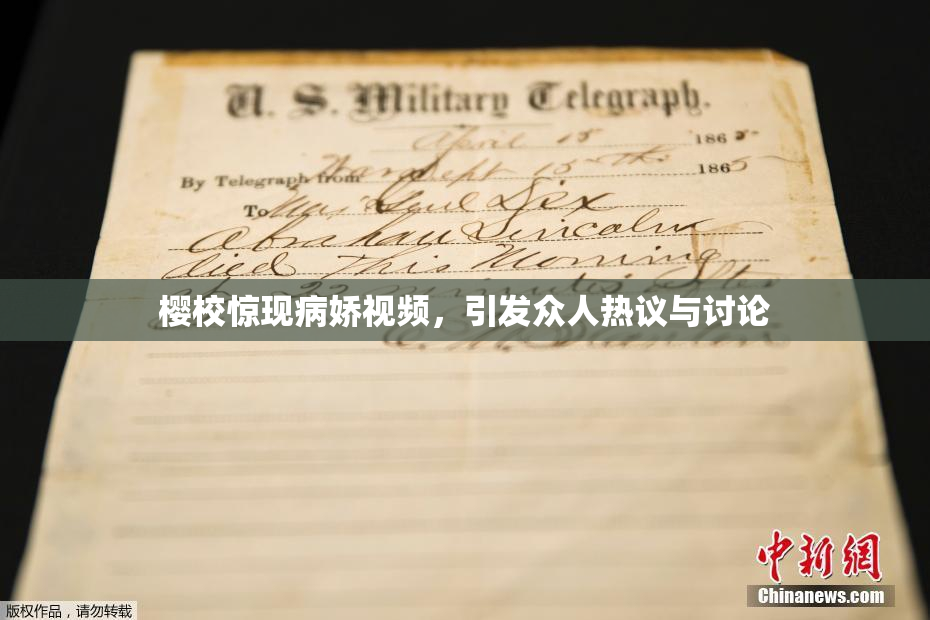 U. S. Military Telegraph.
April 15 1865
By Telegraph from War Dept 15th 1865
To Maj Genl Dix
Abraham Lincoln
died This Morning
at 22 minutes after
樱校惊现病娇视频，引发众人热议与讨论
E. M. Stanton
中新网
Chinanews.com
版权作品，请勿转载